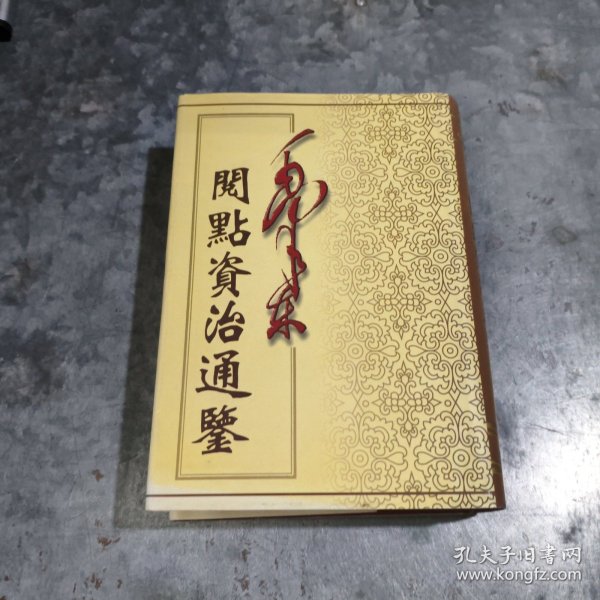 毛泽东
閱點資治通鑒
孔夫子旧书网
www.kongfz.com